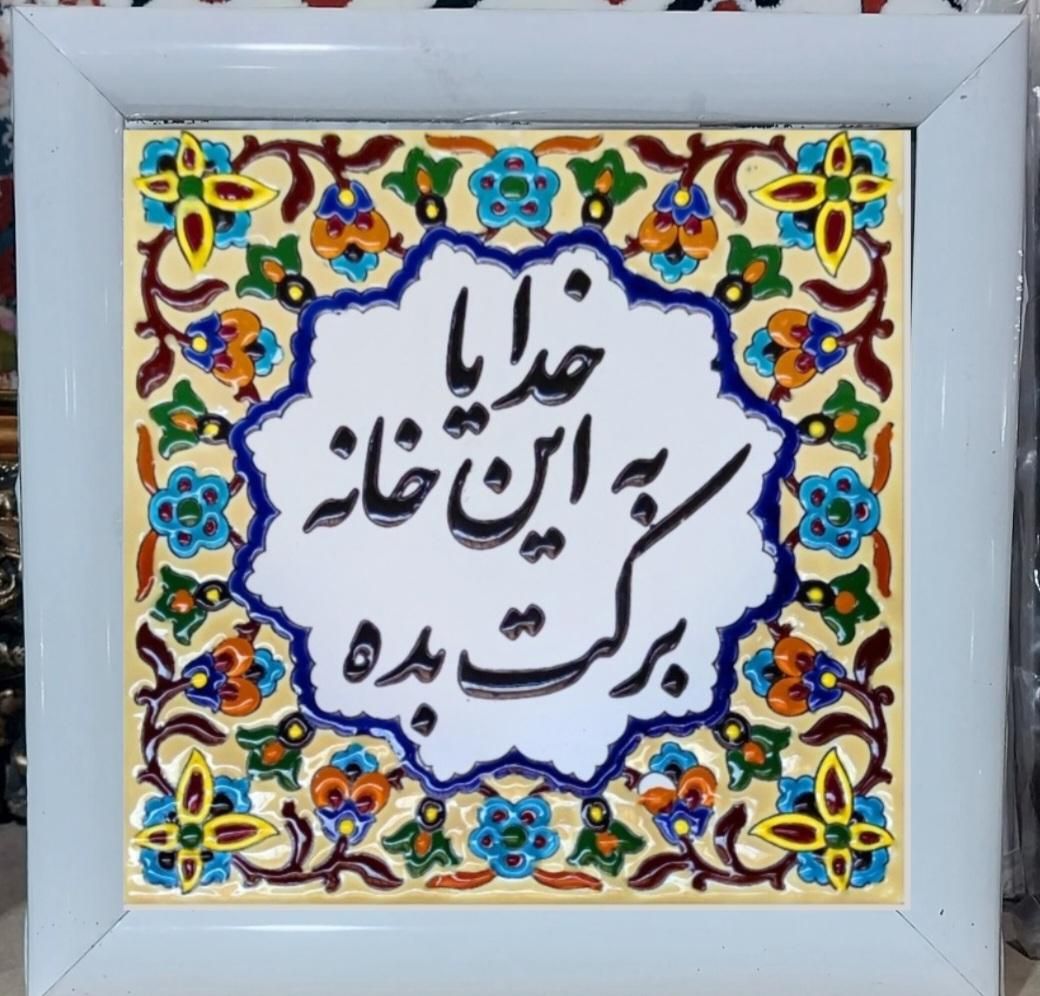 خدایا
به این خانه
برکت بده